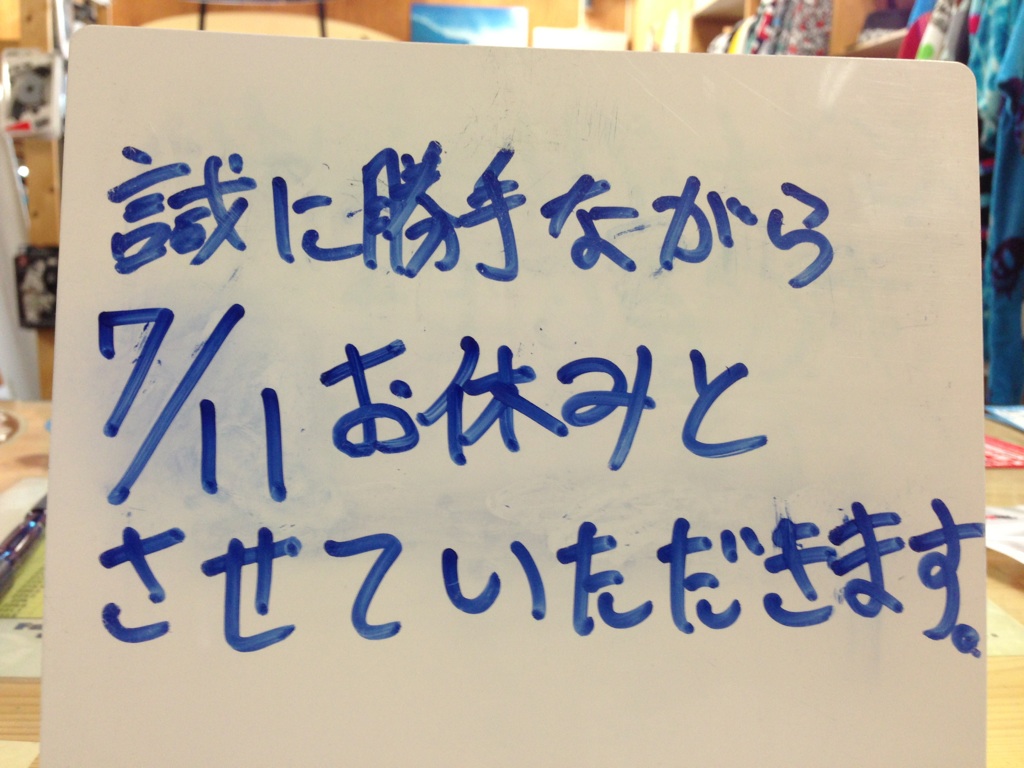 誠に勝手ながら
7/11 お休みと
させていただきます。